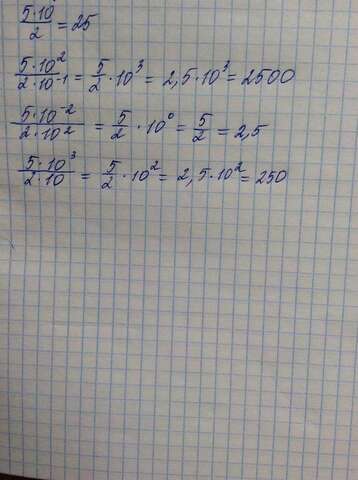 5·10/2 = 25
5·10²/2·10⁻¹ = 5/2·10³ = 2,5·10³ = 2500
5·10⁻²/2·10² = 5/2·10⁰ = 5/2 = 2,5
5·10³/2·10 = 5/2·10² = 2,5·10² = 250